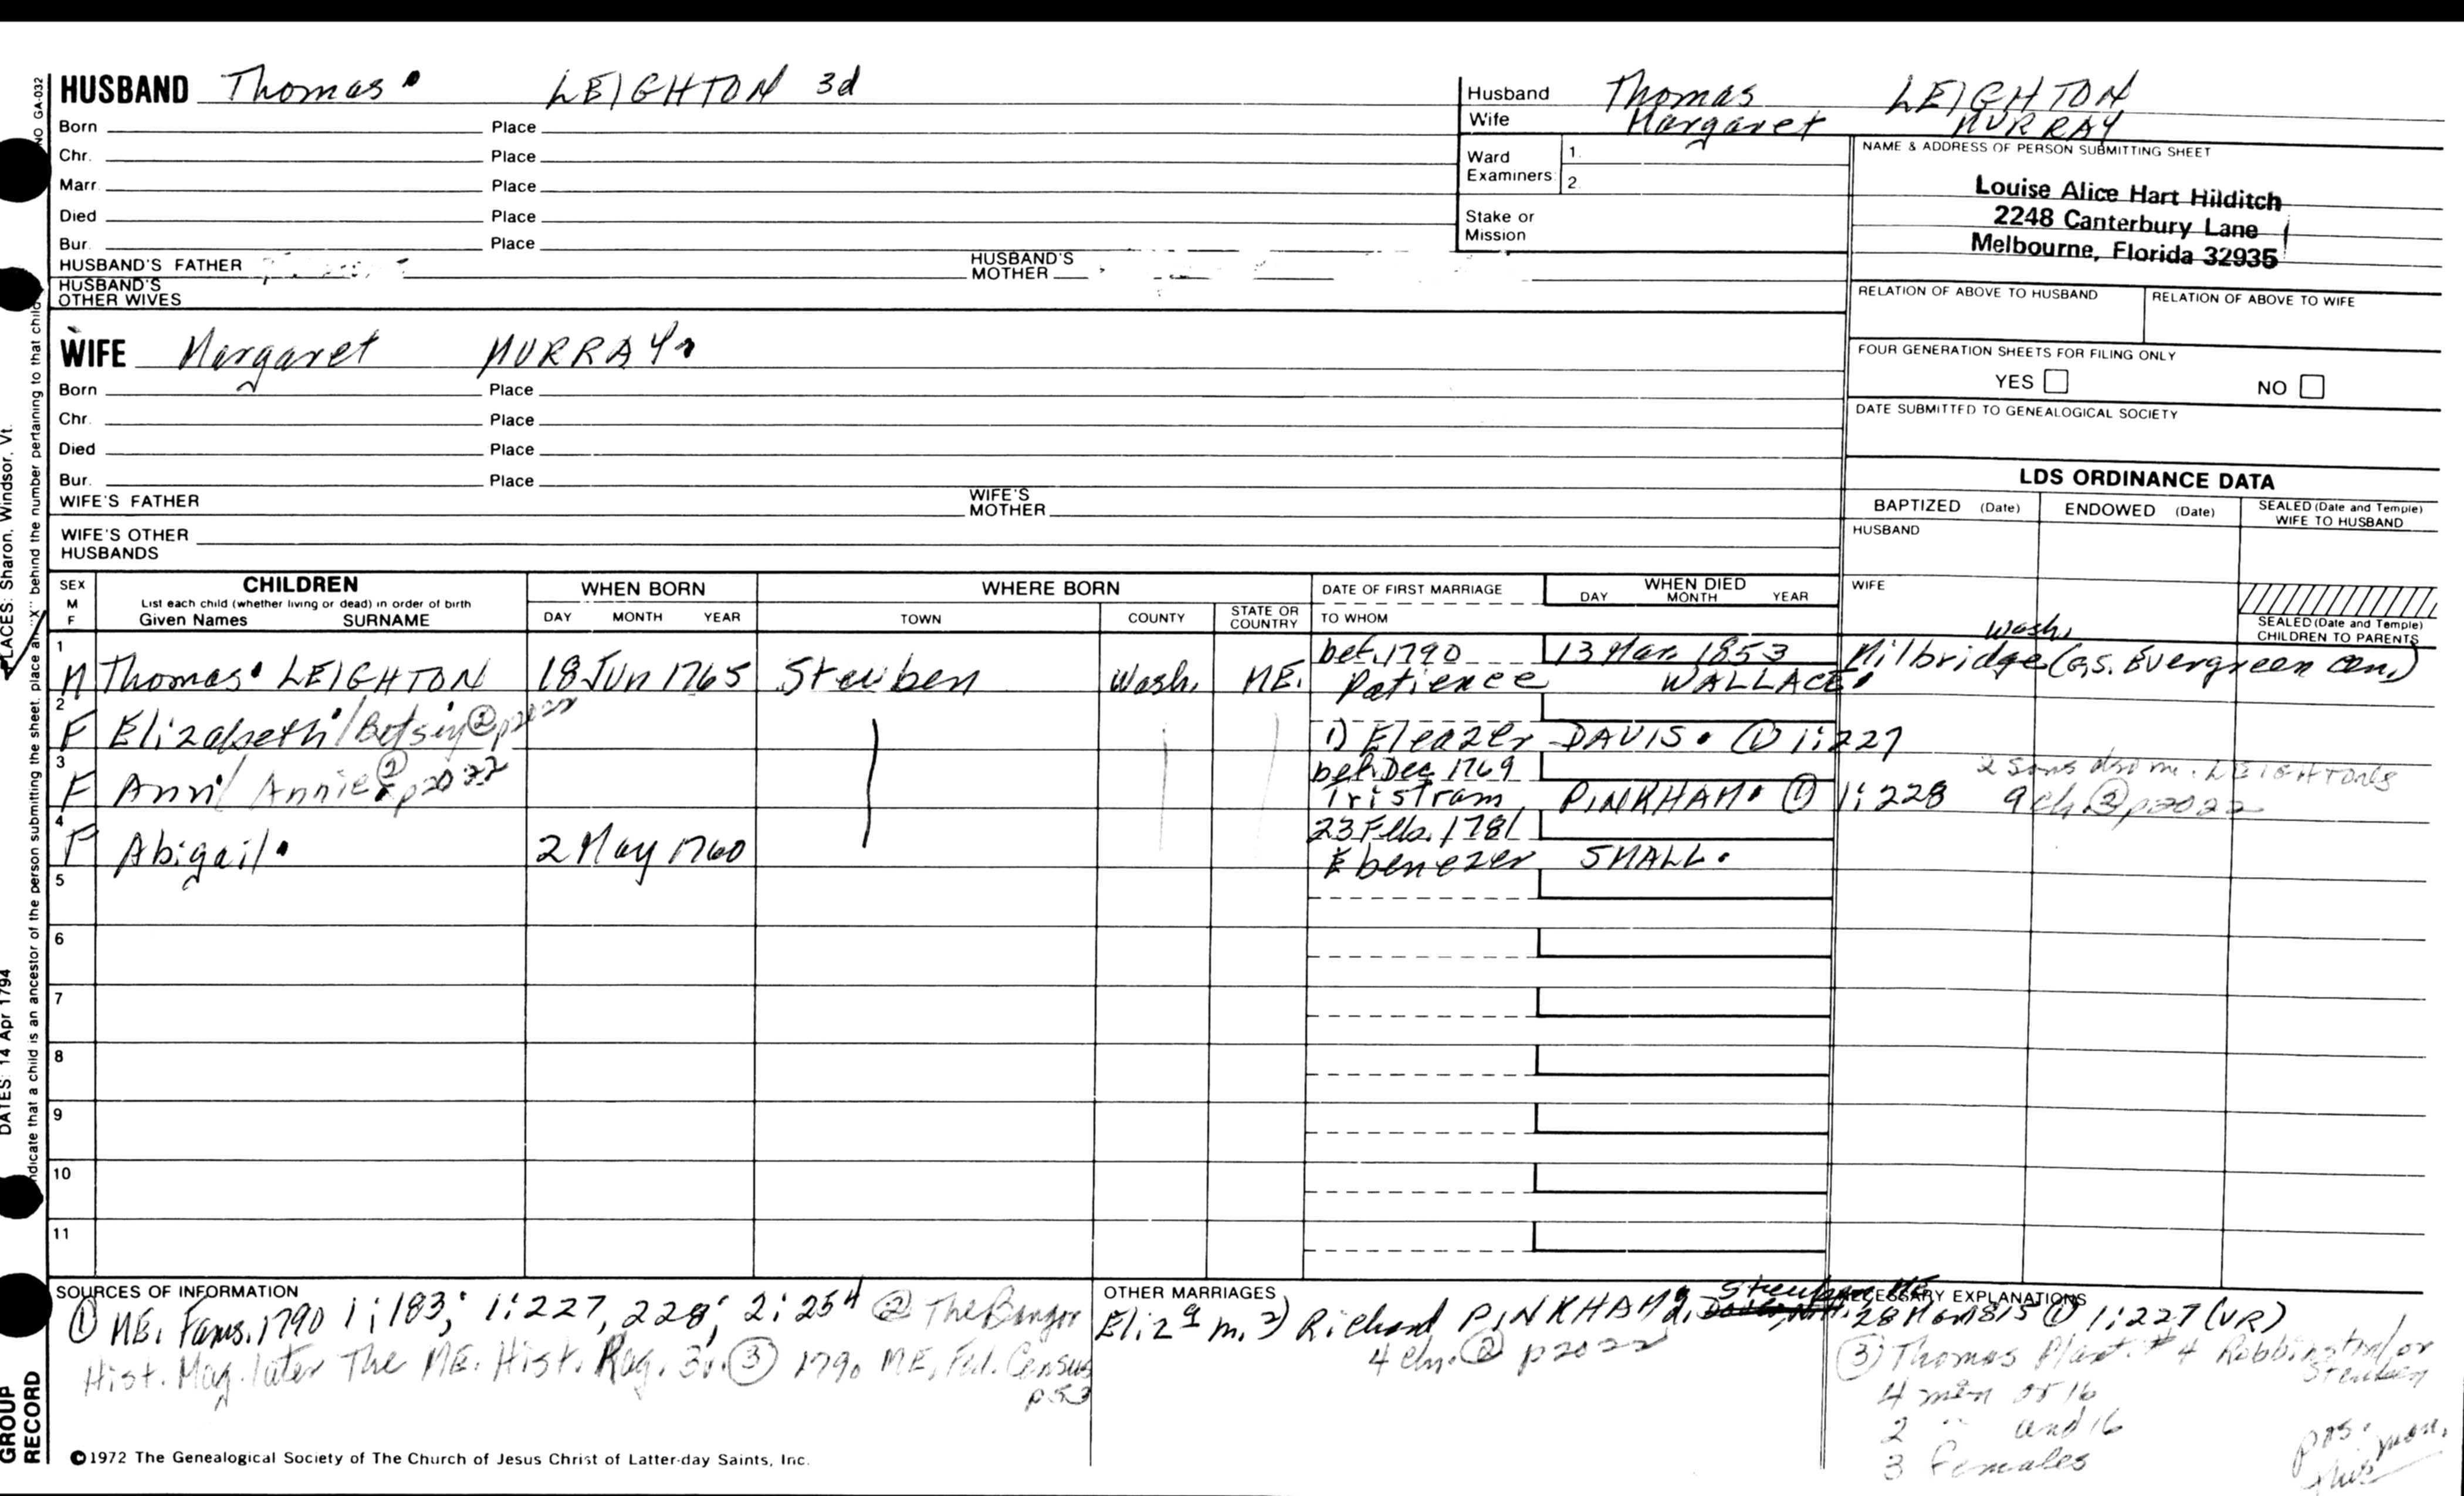 HUSBAND Thomas LEIGHTON 3d
Born Place
Chr. Place
Marr. Place
Died Place
Bur. Place
HUSBAND'S FATHER HUSBAND'S MOTHER
HUSBAND'S OTHER WIVES
Husband Thomas LEIGHTON
Wife Margaret MURRAY
Ward Examiners 1. 2.
Stake or Mission
NAME & ADDRESS OF PERSON SUBMITTING SHEET
Louise Alice Hart Hilditch
2248 Canterbury Lane
Melbourne, Florida 32935
RELATION OF ABOVE TO HUSBAND RELATION OF ABOVE TO WIFE
FOUR GENERATION SHEETS FOR FILING ONLY
YES NO
DATE SUBMITTED TO GENEALOGICAL SOCIETY
WIFE Margaret MURRAY
Born Place
Chr. Place
Died Place
Bur. Place
WIFE'S FATHER WIFE'S MOTHER
WIFE'S OTHER HUSBANDS
LDS ORDINANCE DATA
BAPTIZED (Date) ENDOWED (Date) SEALED (Date and Temple) WIFE TO HUSBAND
HUSBAND
WIFE
SEALED (Date and Temple) CHILDREN TO PARENTS
SEX M F CHILDREN WHEN BORN WHERE BORN DATE OF FIRST MARRIAGE WHEN DIED
List each child (whether living or dead) in order of birth
Given Names SURNAME DAY MONTH YEAR TOWN COUNTY STATE OR COUNTRY TO WHOM DAY MONTH YEAR
1 M Thomas LEIGHTON 18 Jun 1765 Steuben Wash. ME. bef. 1790 13 Mar. 1853 Milbridge Wash. (G.S. Evergreen cem.)
Patience WALLACE
2 F Elizabeth/Betsey ② p2022
1) Eleazer DAVIS. ① 1:227
3 F Ann/Annie ② p2022 bef. Dec 1769
Tristram PINKHAM ① 1:228
2 sons also m. LEIGHTONs
9 ch. ② p2022
4 F Abigail 2 May 1760 23 Feb. 1781
Ebenezer SMALL.
5
6
7
8
9
10
11
SOURCES OF INFORMATION
① ME. Fams. 1790 1:183; 1:227, 228; 2:254 ② The Bangor
Hist. Mag. later The ME. Hist. Mag. 3v. ③ 1790 ME. Fed. Census
p53
OTHER MARRIAGES
Steuben ME
Eliz m. 2) Richard PINKHAM 28 Mar 1815 ① 1:227 (VR)
4 ch. ② p2022
NECESSARY EXPLANATIONS
③ Thomas Plant. #4 Robbinston/or
Steuben
4 men or 16
2 " and 16
3 females
©1972 The Genealogical Society of The Church of Jesus Christ of Latter-day Saints, Inc.
NO GA-032
PLACES: Sharon, Windsor, Vt.
DATES: 14 Apr 1794
indicate that a child is an ancestor of the person submitting the sheet, place an "X" behind the number pertaining to that child
GROUP RECORD